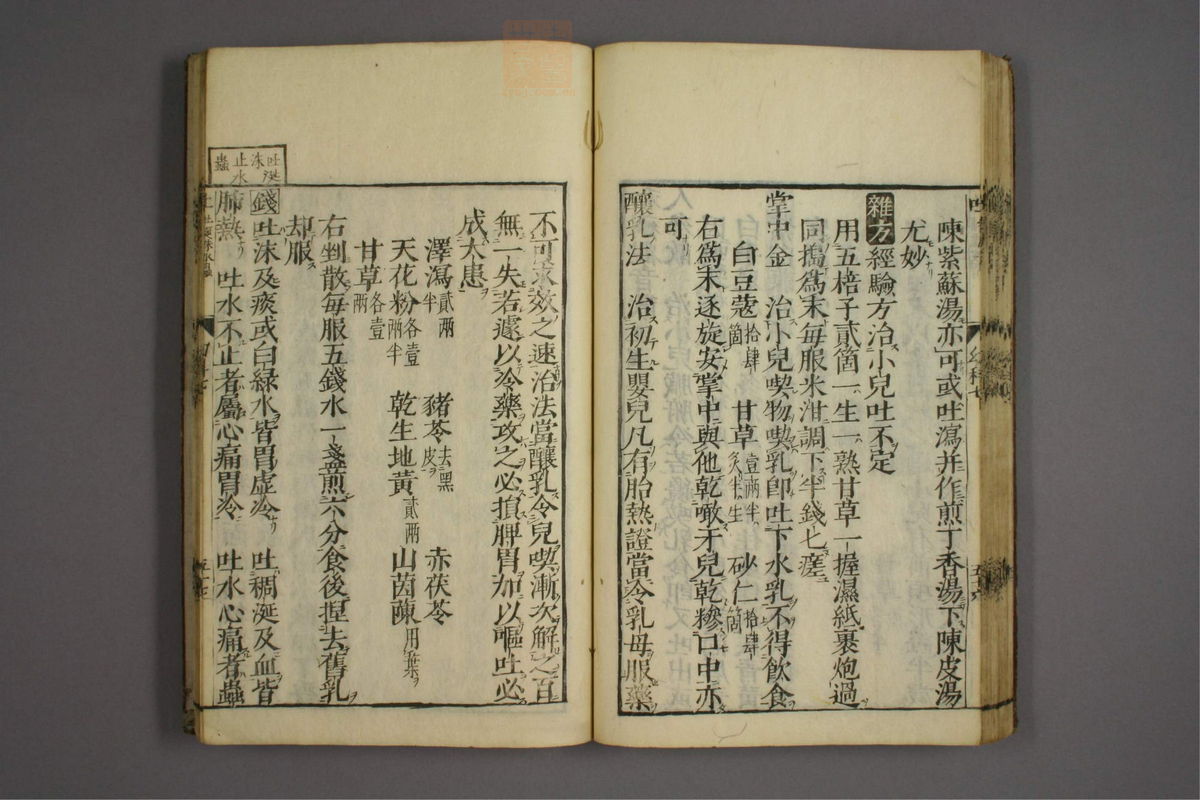 陳紫蘇湯亦可或吐瀉并作煎丁香湯下陳皮湯
尤妙
雜方經驗方治小兒吐不定
用五棓子貳箇一生一熟甘草一握濕紙裹炮過
同擣為末每服米泔調下半錢七瘥
掌中金 治小兒喫物喫乳即吐下水乳不得飲食
白豆蔻拾肆箇 甘草壹兩半炙半生 砂仁拾肆箇
右為末逐旋安掌中與他乾噉牙兒乾糝口中亦
可
釀乳法 治初生嬰兒凡有胎熱證當冷乳母服藥
不可求效之速治法當釀乳令兒喫漸次解之百
無一失若遽以冷藥攻之必損脾胃加以嘔吐必
成大患
澤瀉貳兩半 豬苓去黑皮 赤茯苓
天花粉各壹兩半 乾生地黃貳兩 山茵蔯用葉
甘草各壹兩
右剉散每服五錢水一盞煎六分食後捏去舊乳
却服
錢吐沫及痰或白綠水皆胃虛冷 吐稠涎及血皆
肺熱 吐水不止者屬心痛胃冷 吐水心痛者蟲
吐涎
沫
止水
蟲